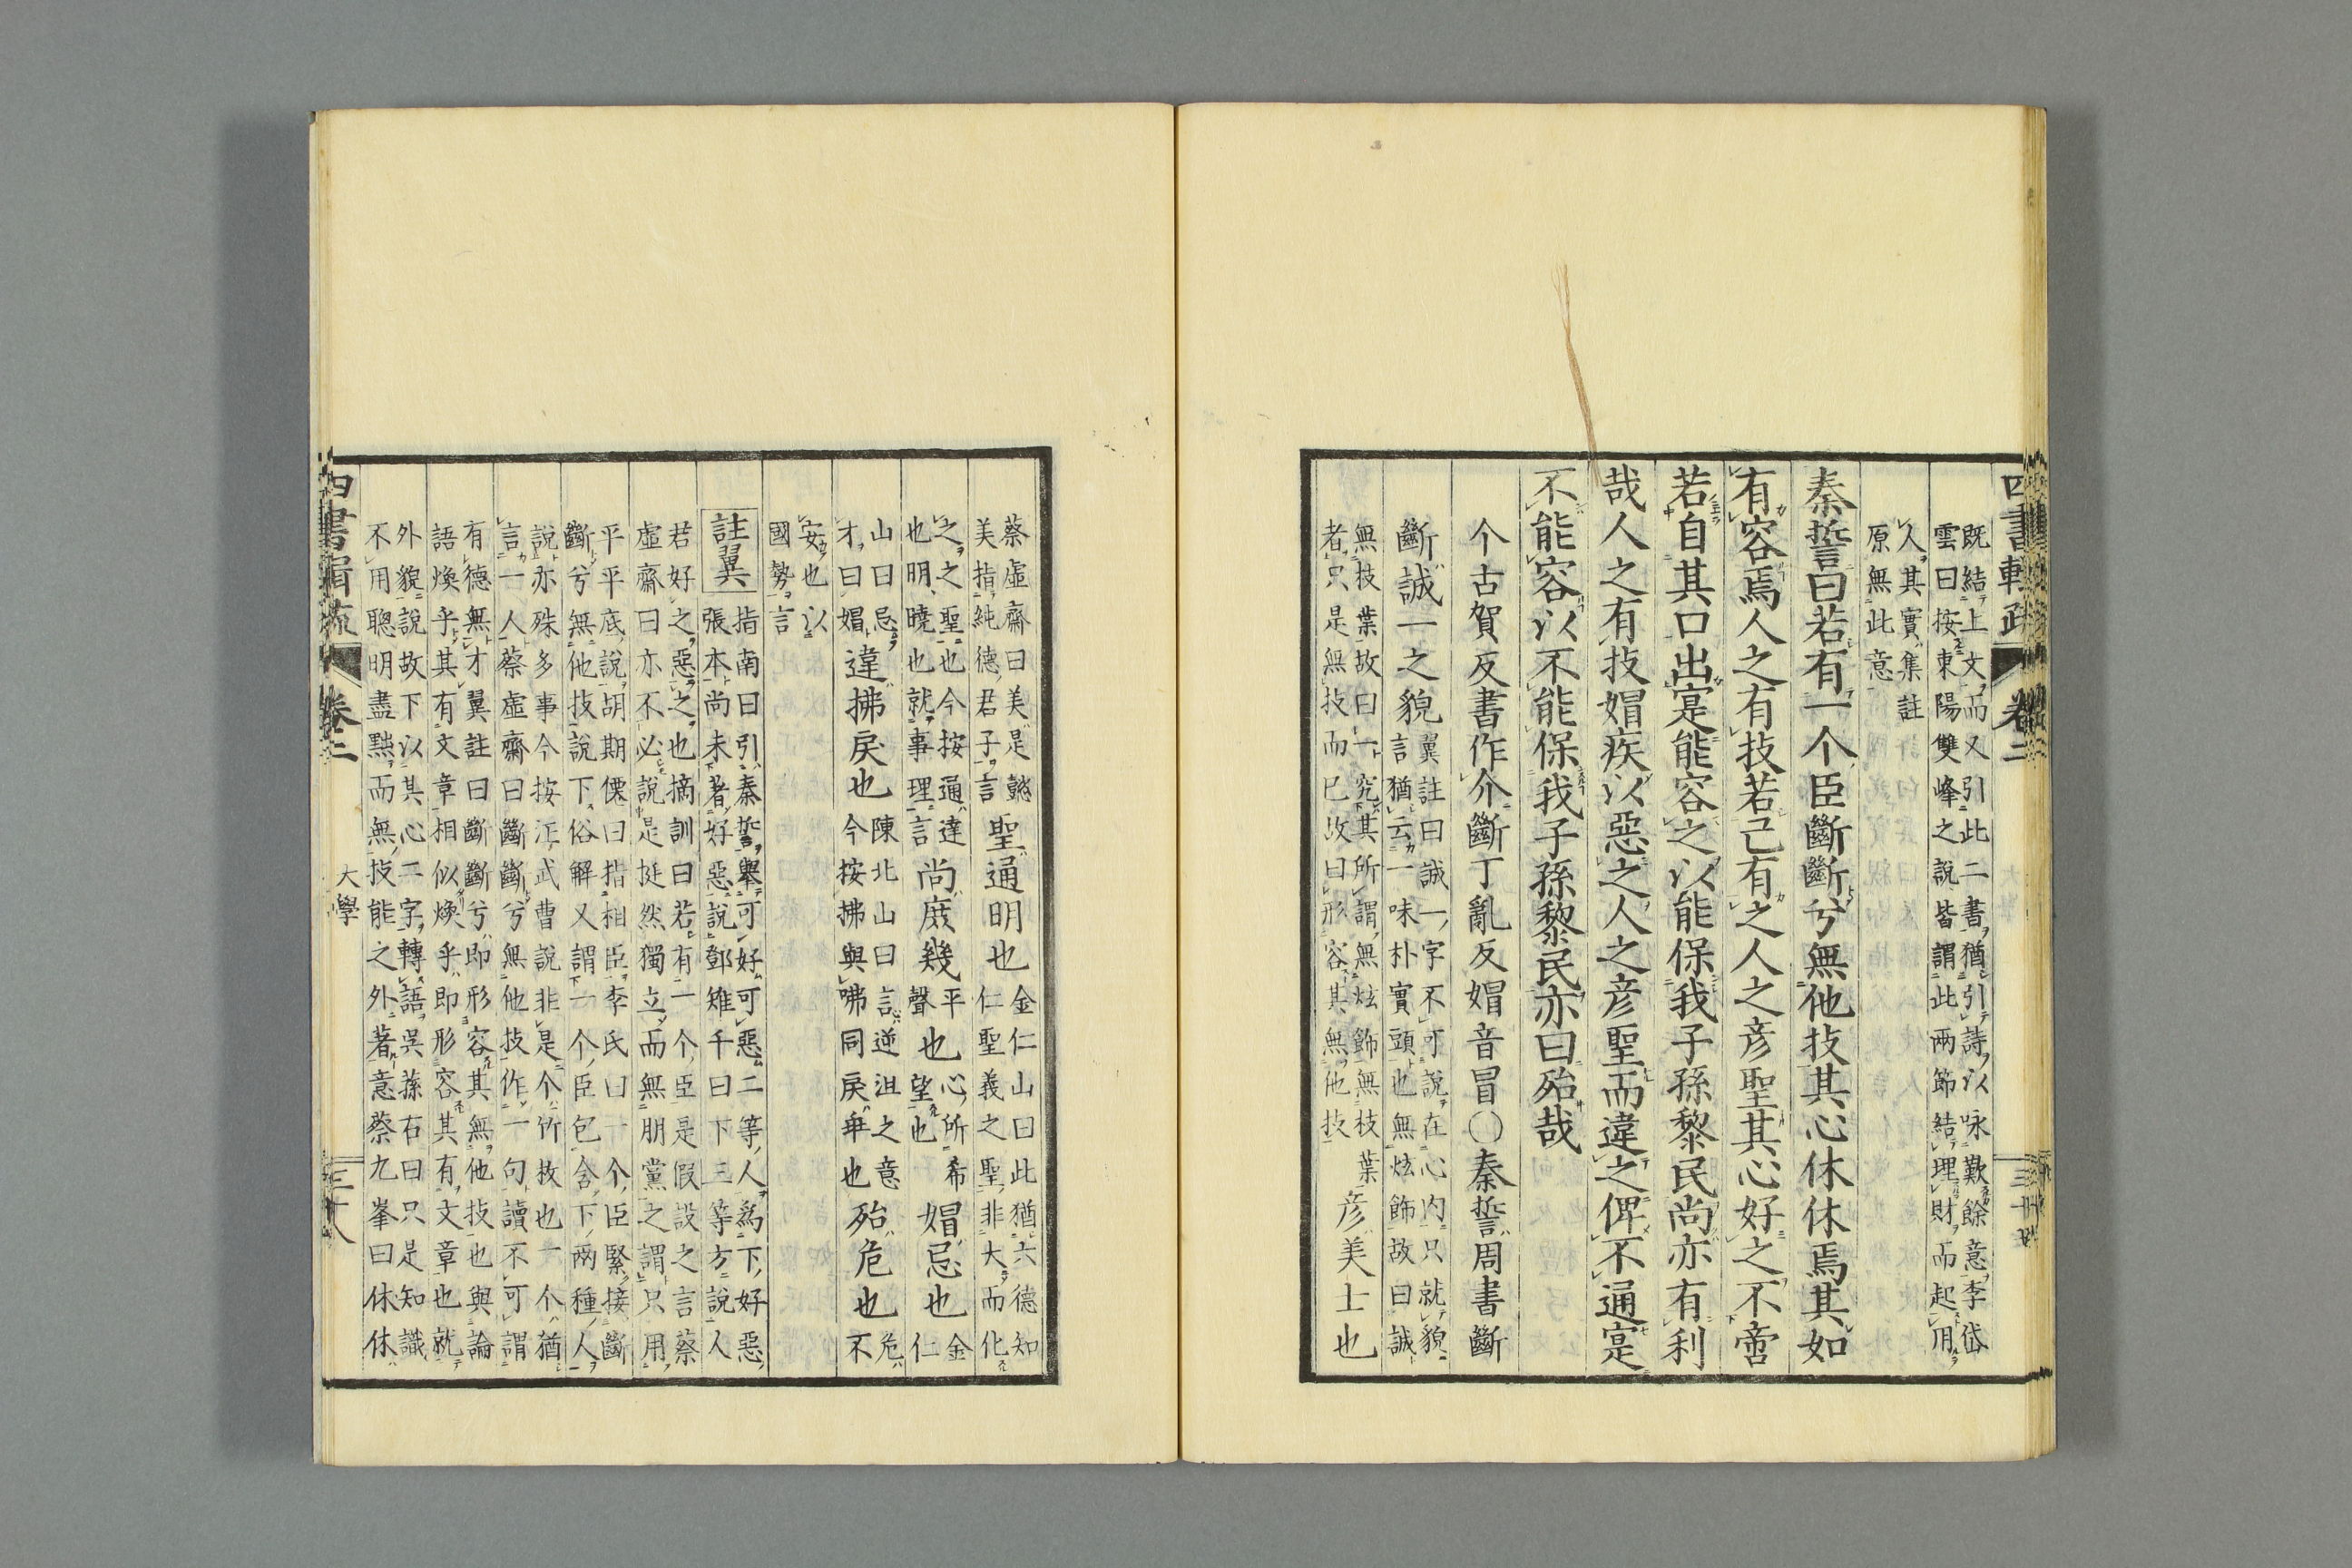 既結上文而又引此二書猶引詩以咏歎餘意李岱
雲曰按東陽雙峰之說皆謂此兩節結理財而起用
人其實集註
原無此意
秦誓曰若有一个臣斷斷兮無他技其心休休焉其如
有容焉人之有技若己有之人之彦聖其心好之不啻
若自其口出寔能容之以能保我子孫黎民尚亦有利
哉人之有技媢疾以惡之人之彦聖而違之俾不通寔
不能容以不能保我子孫黎民亦曰殆哉
个古賀反書作介斷丁亂反媢音冒〇秦誓周書斷
斷誠一之貌
翼註曰誠一字不可說在心內只就貌
言猶云一味朴實頭也無炫飾故曰誠
無技葉故曰一究其所謂無炫飾無枝葉
者只是無技而已故曰形容其無他技
彦美士也
蔡虛齋曰美是懿
美指純德君子言
聖通明也
金仁山曰此猶六德知
仁聖義之聖非大而化
之之聖也今按通達
也明曉也就事理言
尚庻幾
平心所希
聲
也望也
媢忌也
金仁
山曰忌
才曰媢
違拂戾也
陳北山曰言逆沮之意
今按拂與咈同戾乖也
殆危也
危不
安也以
國勢言
註翼
指南曰引秦誓舉可好可惡二等人爲下好惡
張本尚未著好惡說鄧雉千曰下三等方說人
若好之惡之也摘訓曰若有一个臣是假設之言蔡
虛齋曰亦不必說是挺然獨立而無朋黨之謂只用
平平底說胡期僊曰指相臣李氏曰一个臣緊接斷
斷兮無他技說下俗解又謂一个臣包含下兩種人
說亦殊多事今按江武曹說非是个竹枚也一个猶
言一人蔡虛齋曰斷斷兮無他技作一句讀不可謂
有德無才翼註曰斷斷兮即形容其無他技也與論
語煥乎其有文章相似煥乎即形容其有文章也就
外貌說故下以其心二字轉語吳蓀右曰只是知識
不用聰明盡黜而無技能之外著意蔡九峯曰休休
四書輯疏 卷二
大學
三十八